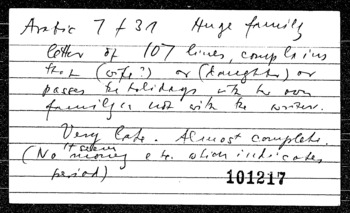 Arabic 7 f 31 Huge family
letter of 107 lines, complains
that (wife?) or (daughter) or
passes the holidays with her own
family & not with the writer.
Very late. Almost complete.
it seems
(No money etc. which indicates
period)
101217